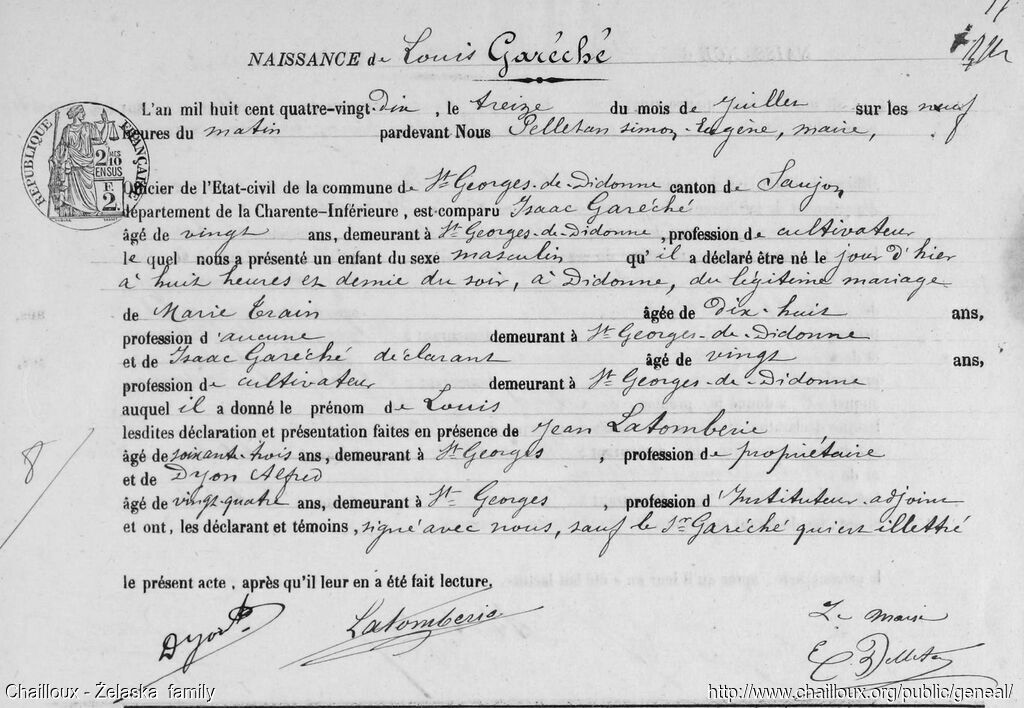 NAISSANCE de Louis Garéché
L'an mil huit cent quatre-vingt-dix, le treize du mois de Juillet sur les neuf
heures du matin pardevant Nous Pelletan Simon-Eugène, maire,
RÉPUBLIQUE FRANÇAISE
2 MES
10
EN SUS
F.
2.
Officier de l'Etat-civil de la commune de St Georges-de-Didonne canton de Saujon
département de la Charente-Inférieure, est comparu Isaac Garéché
âgé de vingt ans, demeurant à St Georges-de-Didonne, profession de cultivateur
le quel nous a présenté un enfant du sexe masculin qu'il a déclaré être né le jour d'hier
à huit heures et demie du soir, à Didonne, du légitime mariage
de Marie Train âgée de dix-huit ans,
profession d'aucune demeurant à St Georges-de-Didonne
et de Isaac Garéché déclarant âgé de vingt ans,
profession de cultivateur demeurant à St Georges-de-Didonne
auquel il a donné le prénom de Louis
lesdites déclaration et présentation faites en présence de Jean Latomberie
âgé de soixante-trois ans, demeurant à St Georges, profession de propriétaire
et de Dyon Alfred
âgé de vingt-quatre ans, demeurant à St Georges, profession d'Instituteur-adjoint
et ont, les déclarant et témoins, signé avec nous, sauf le Sr Garéché qui est illettré
le présent acte, après qu'il leur en a été fait lecture.
Dyon Latomberie Le maire
E. Pelletan
8
Chailloux - Żelaska family http://www.chailloux.org/public/geneal/